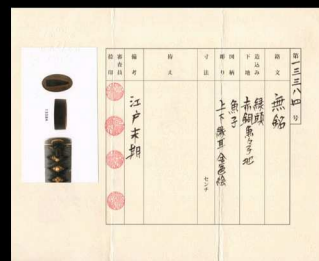 第一三三八四号
銘文 無銘
造込み 縁頭
下地 赤銅魚々子地
図柄 魚子
彫り 上下 耳金色絵
寸法 センチ
備考 江戸末期
審査員
捺印